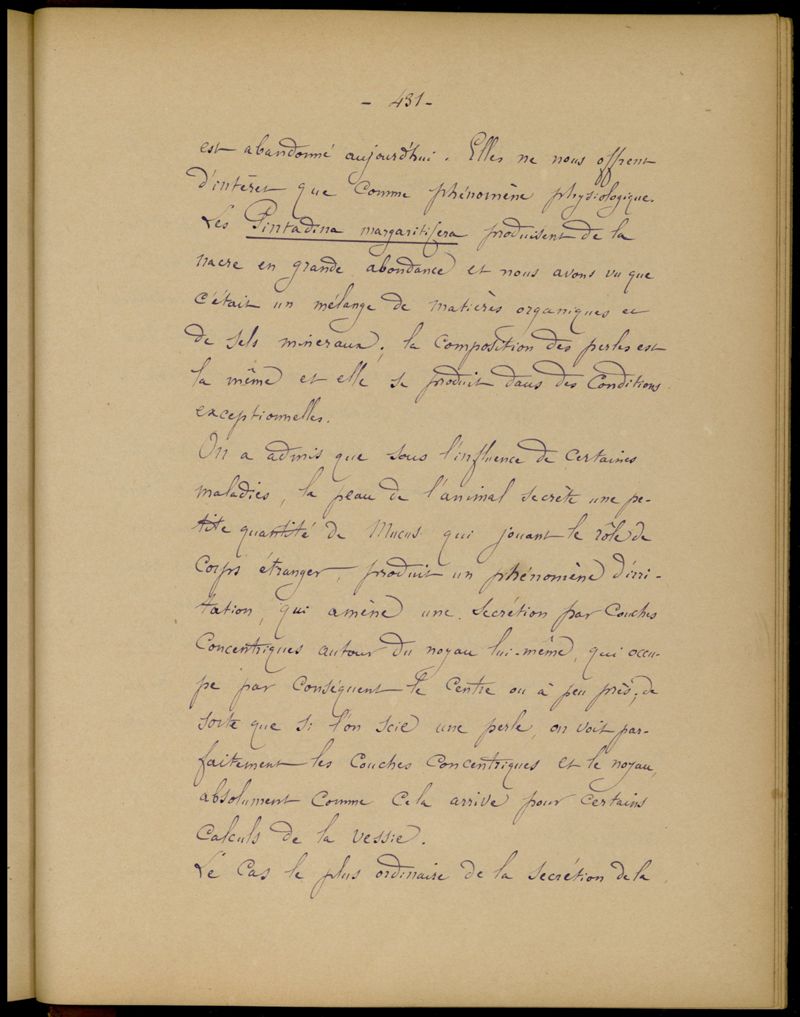 - 431 -
est abandonné aujourd'hui. Elles ne nous offrent
d'intérêt que comme phénomène physiologique.
Les Pintadina margaritifera produisent de la
nacre en grande abondance et nous avons vu que
c'était un mélange de matières organiques et
de sels minéraux; la composition des perles est
la même et elle se produit dans des conditions
exceptionnelles.
On a admis que sous l'influence de certaines
maladies, la peau de l'animal secrète une pe-
tite quantité de mucus qui jouant le rôle de
corps étranger, produit un phénomène d'irri-
tation, qui amène une secrétion par couches
concentriques autour du noyau lui-même, qui occu-
pe par conséquent le centre ou à peu près; de
sorte que si l'on scie une perle, on voit par-
faitement les couches concentriques et le noyau,
absolument comme cela arrive pour certains
calculs de la vessie.
Le cas le plus ordinaire de la secrétion de la